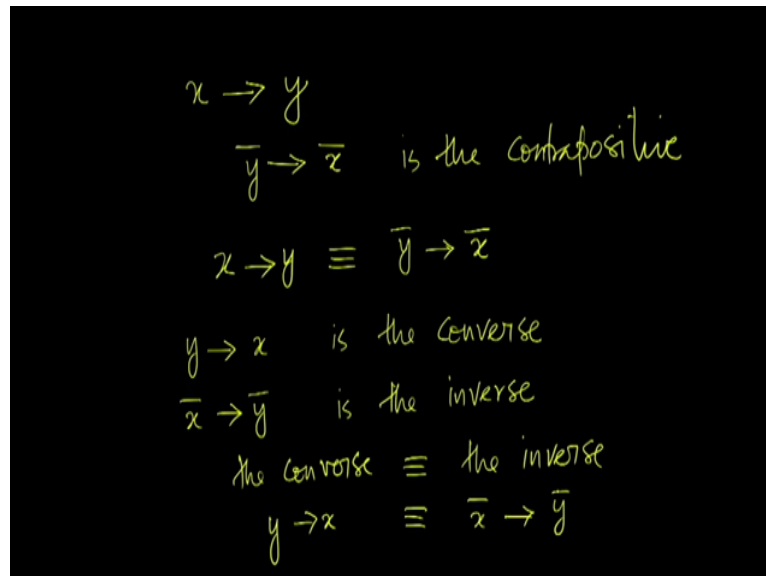 x → y
y̅ → x̅ is the contrapositive
x → y ≡ y̅ → x̅
y → x is the converse
x̅ → y̅ is the inverse
the converse ≡ the inverse
y → x ≡ x̅ → y̅